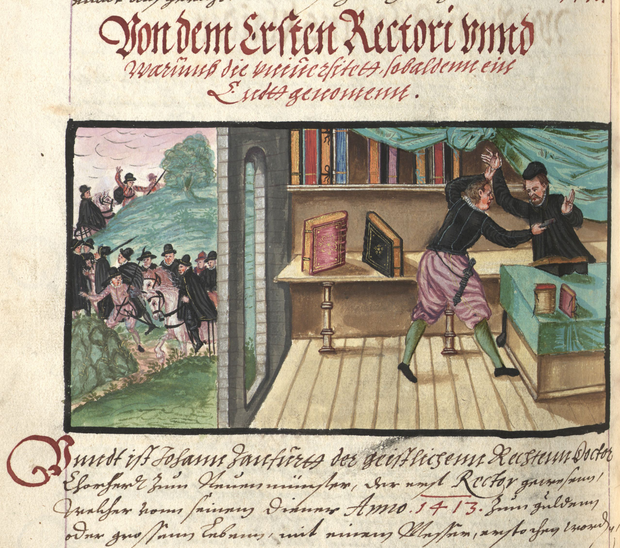 Von dem Ersten Rectori vnnd
Warumb die vniuersitett sobaldenn ein
Endt genomenn.
Vnndt ist Johann Zantfurtt der geistlichenn Rechtenn Doctor
Chorherr zum Neuenmünster, der erst Rector gewesenn,
welcher vonn seinem diener Anno. 1413. Zum guldenn
oder grossenn Lebenn, mit einem Messer, erstochen worden,